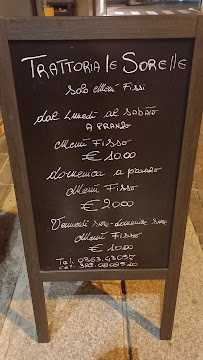 TRATTORIA le SORELLE
SOLO MENÙ FISSI
dal LUNEDÌ al SABATO
A PRANZO
MENÙ FISSO
€ 10.00
domenica a pranzo
MENÙ FISSO
€ 20.00
VENERDÌ SERA-domenica SERA
MENÙ FISSO
€ 10.00
Tel. 0363.43057